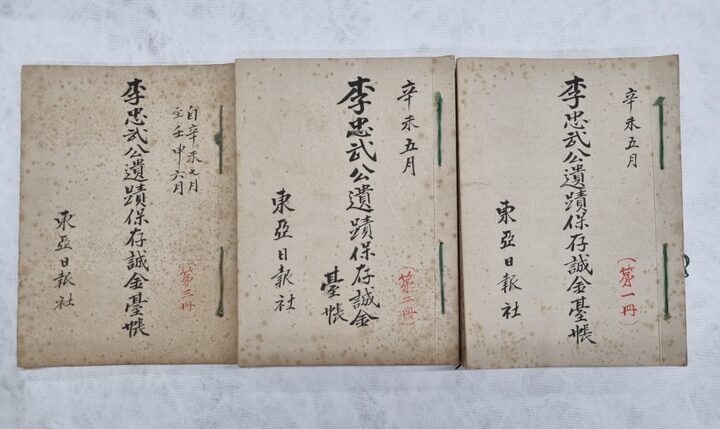 辛未五月
李忠武公遺蹟保存誠金臺帳
(第一冊)
東亞日報社
辛未五月
李忠武公遺蹟保存誠金
臺帳
(第二冊)
東亞日報社
自辛未七月
至壬申六月
李忠武公遺蹟保存誠金臺帳
(第三冊)
東亞日報社